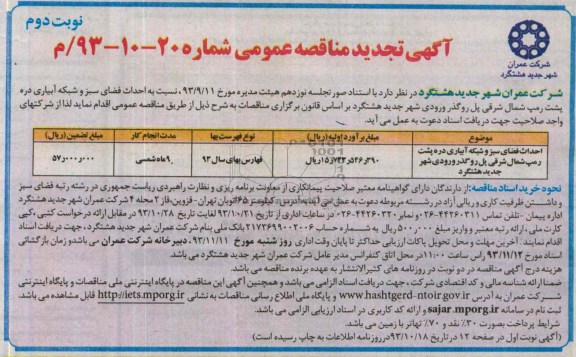 نوبت دوم
شرکت عمران
شهر جدید هشتگرد
آگهی تجدید مناقصه عمومی شماره ۲۰-۱۰-۹۳/م
شرکت عمران شهر جدید هشتگرد در نظر دارد با استناد صورتجلسه نوزدهم هیئت مدیره مورخ ۹۳/۹/۱۱، نسبت به احداث فضای سبز و شبکه آبیاری دره
پشت رمپ شمال شرقی پل روگذر ورودی شهر جدید هشتگرد بر اساس قانون برگزاری مناقصات به شرح ذیل از طریق مناقصه عمومی اقدام نماید لذا از شرکتهای
واجد صلاحیت جهت دریافت اسناد دعوت به عمل می آید.
موضوع مبلغ برآورد اولیه (ریال) نوع فهرست بها مدت انجام کار مبلغ تضمین (ریال)
احداث فضای سبز و شبکه آبیاری دره پشت
رمپ شمال شرقی پل روگذر ورودی شهر
جدید هشتگرد
فهارس بهای سال ۹۳ ۹ ماه شمسی
نحوه خرید اسناد مناقصه: از دارندگان دارای گواهینامه معتبر صلاحیت پیمانکاری از معاونت برنامه ریزی و نظارت راهبردی ریاست جمهوری در رشته رتبه فضای سبز
و داشتن ظرفیت کاری و ریالی آزاد در رشته مربوطه دعوت به عمل می آید به آدرس: کیلومتر ۶۵ اتوبان تهران - قزوین، فاز ۲ محله ۴ شرکت عمران شهر جدید هشتگرد
اداره پیمان - تلفن تماس ۰۲۶-۴۴۲۶۰۲۱۱ و نمابر ۰۲۶-۴۴۲۶۰۳۲۰ در ساعات اداری از تاریخ ۹۳/۱۰/۲۱ لغایت تاریخ ۹۳/۱۰/۲۸ در مقابل ارائه درخواست کتبی، کپی
کارت ملی، ارائه رتبه معتبر و واریز مبلغ ۵۰۰٫۰۰۰ ریال به شماره حساب ۲۱۷۲۶۹۹۰۰۲۰۰۶ بانک ملی بنام شرکت عمران شهر جدید هشتگرد، جهت دریافت اسناد
اقدام نمایند. آخرین مهلت و محل تحویل پاکات ارزیابی حداکثر تا پایان وقت اداری روز شنبه مورخ ۹۳/۱۱/۱۱، دبیرخانه شرکت عمران می باشد و زمان بازگشائی
اسناد مورخ ۹۳/۱۱/۱۲ راس ساعت ۱۱:۰۰ در محل اتاق کنفرانس مدیر عامل شرکت عمران شهر جدید هشتگرد می باشد.
هزینه درج آگهی مناقصه در دو نوبت در روزنامه های کثیرالانتشار به عهده برنده مناقصه می باشد.
ضمنا ارائه شناسه ملی و کد اقتصادی شرکت، جهت دریافت اسناد الزامی می باشد و همچنین آگهی این مناقصه در پایگاه اینترنتی ملی مناقصات و پایگاه اینترنتی
شرکت عمران به آدرس www.hashtgerd-ntoir.gov.ir و پایگاه ملی اطلاع رسانی مناقصات به نشانی http://iets.mporg.ir قابل مشاهده می باشد.
ثبت نام در سامانه sajar.mporg.ir و ارائه کد کاربری در اسناد ارزیابی الزامی می باشد.
شرایط پرداخت بصورت ۳۰٪ نقد و ۷۰٪ تهاتر با زمین می باشد.
(آگهی نوبت اول در صفحه ۱۲ در تاریخ ۹۳/۱۰/۱۸ در روزنامه اطلاعات به چاپ رسیده است)